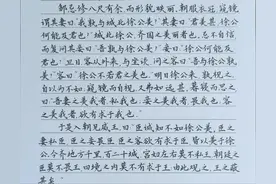 邹忌修八尺有余，而形貌昳丽。朝服衣冠，窥镜，
谓其妻曰：“我孰与城北徐公美？”其妻曰：“君美甚，徐公
何能及君也？”城北徐公，齐国之美丽者也。忌不自信，
而复问其妾曰：“吾孰与徐公美？”妾曰：“徐公何能及
君也？”旦日，客从外来，与坐谈，问之客曰：“吾与徐公孰
美？”客曰：“徐公不若君之美也。”明日徐公来，孰视之，
自以为不如；窥镜而自视，又弗如远甚。暮寝而思之，
曰：“吾妻之美我者，私我也；妾之美我者，畏我也；客
之美我者，欲有求于我也。”
于是入朝见威王，曰：“臣诚知不如徐公美。臣之
妻私臣，臣之妾畏臣，臣之客欲有求于臣，皆以美于徐
公。今齐地方千里，百二十城，宫妇左右莫不私王，朝廷之
臣莫不畏王，四境之内莫不有求于王：由此观之，王之蔽
甚矣。”